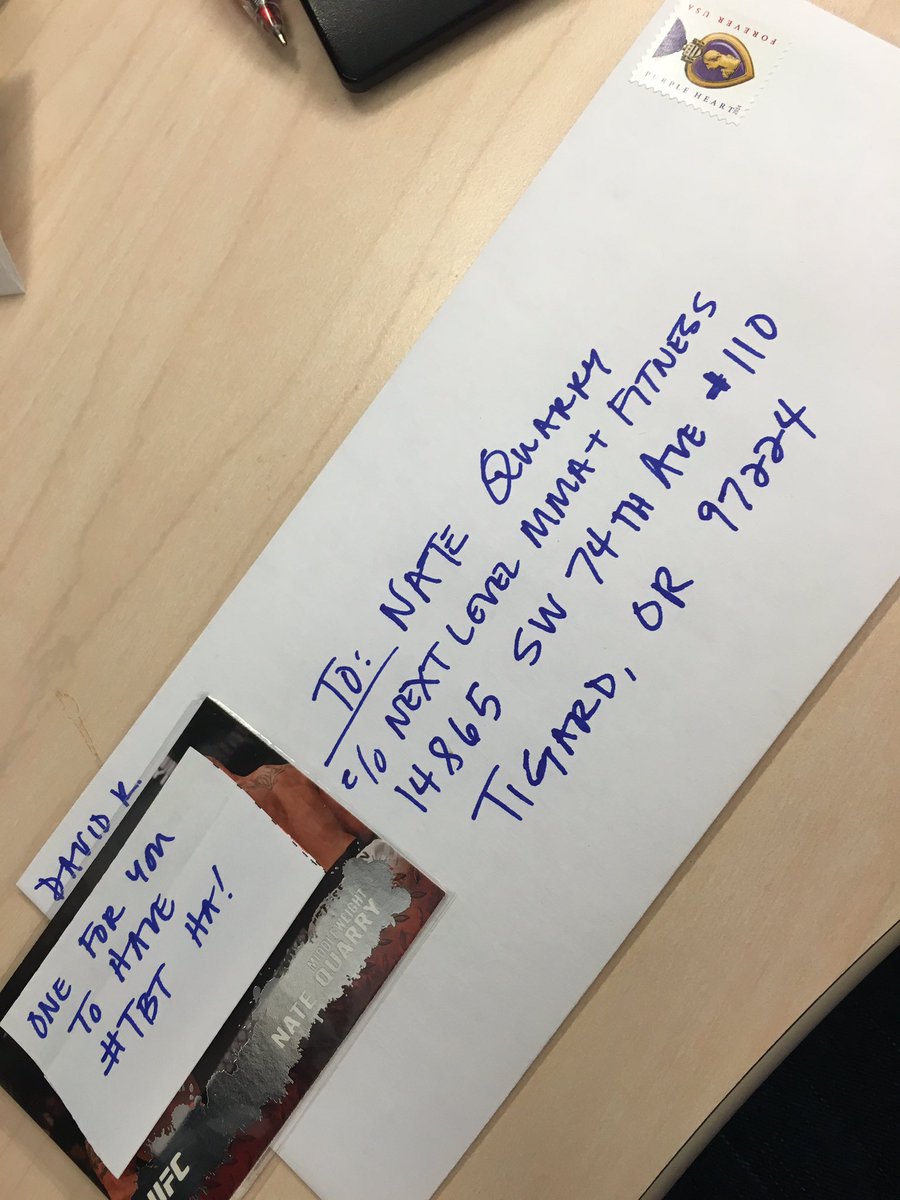 FOREVER USA
PURPLE HEART
TO: NATE QUARRY
c/o NEXT LEVEL MMA + FITNESS
14865 SW 74TH AVE #110
TIGARD, OR 97224
DAVID K.
ONE FOR YOU
TO HAVE
#TBT HA!
MIDDLEWEIGHT
NATE QUARRY
UFC